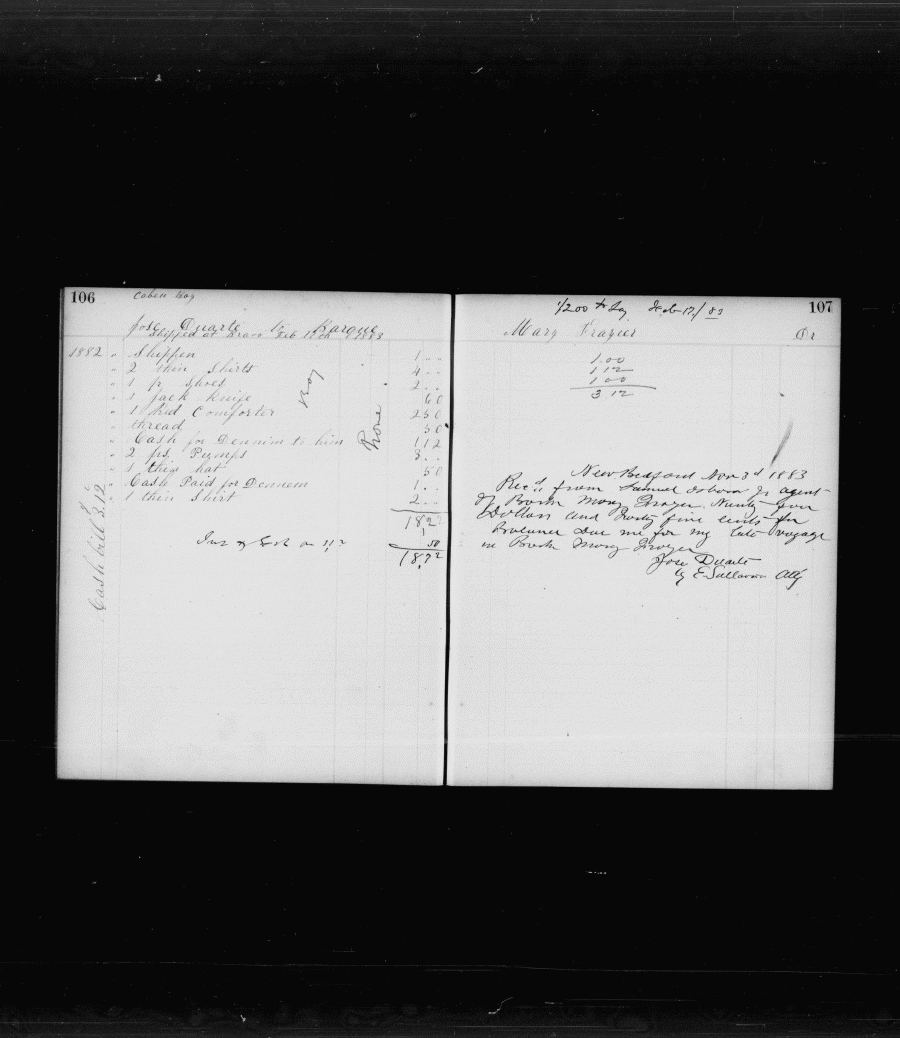 106
Caben boy
Jose Duarte to Barque
Shipped at Brava Feb 12th 1883
1882 " Slippen 1 - -
" 2 thin Shirts 4 - -
" 1 pr shoes 2 - -
" 1 Jack Knife 60
" 1 Comforter 2 50
" thread 50
" Cash for Dennim to him 1 12
" 2 prs. Pumps 3 - -
" 1 thin hat 50
" Cash Paid for Dennem 1 - -
" 1 thin Shirt 2 - -
Boy
None
Cash bill 3.12
18,22
on 11,2 50
18,72
1/200 Feb 12/83
107
Mary Frazier Cr
1.00
1 12
1 00
3 12
New Bedford Nov 3d 1883
Rec'd from Samuel Osborn Jr agent
of Bark Mary Frazer, Ninty four
Dollars and forty five cents for
Balance due me for my late voyage
in Bark Mary Frazer
Jose Duarte
by E Sullavan Atty